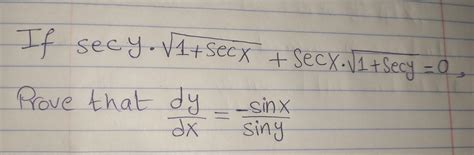 If sec y . √1+secx + secx . √1+secy = 0 ,
Prove that dy/dx = -sinx/siny